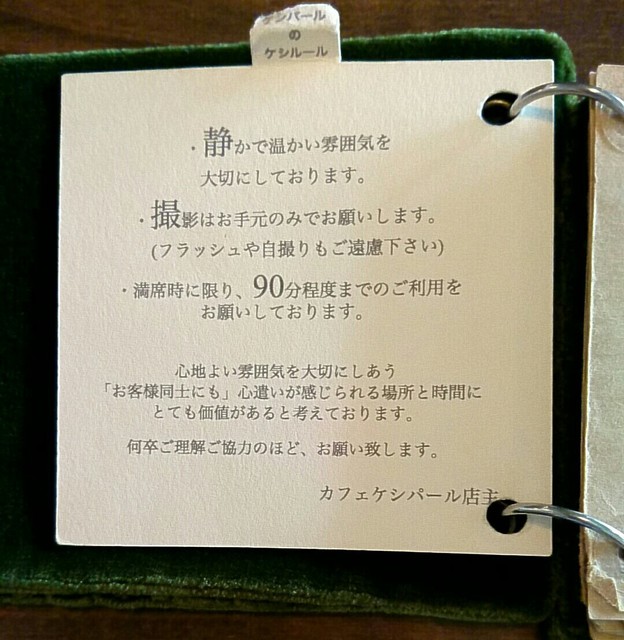 ケシパール
の
ケシルール
・静かで温かい雰囲気を
大切にしております。
・撮影はお手元のみでお願いします。
(フラッシュや自撮りもご遠慮下さい)
・満席時に限り、90分程度までのご利用を
お願いしております。
心地よい雰囲気を大切にしあう
「お客様同士にも」心遣いが感じられる場所と時間に
とても価値があると考えております。
何卒ご理解ご協力のほど、お願い致します。
カフェケシパール店主